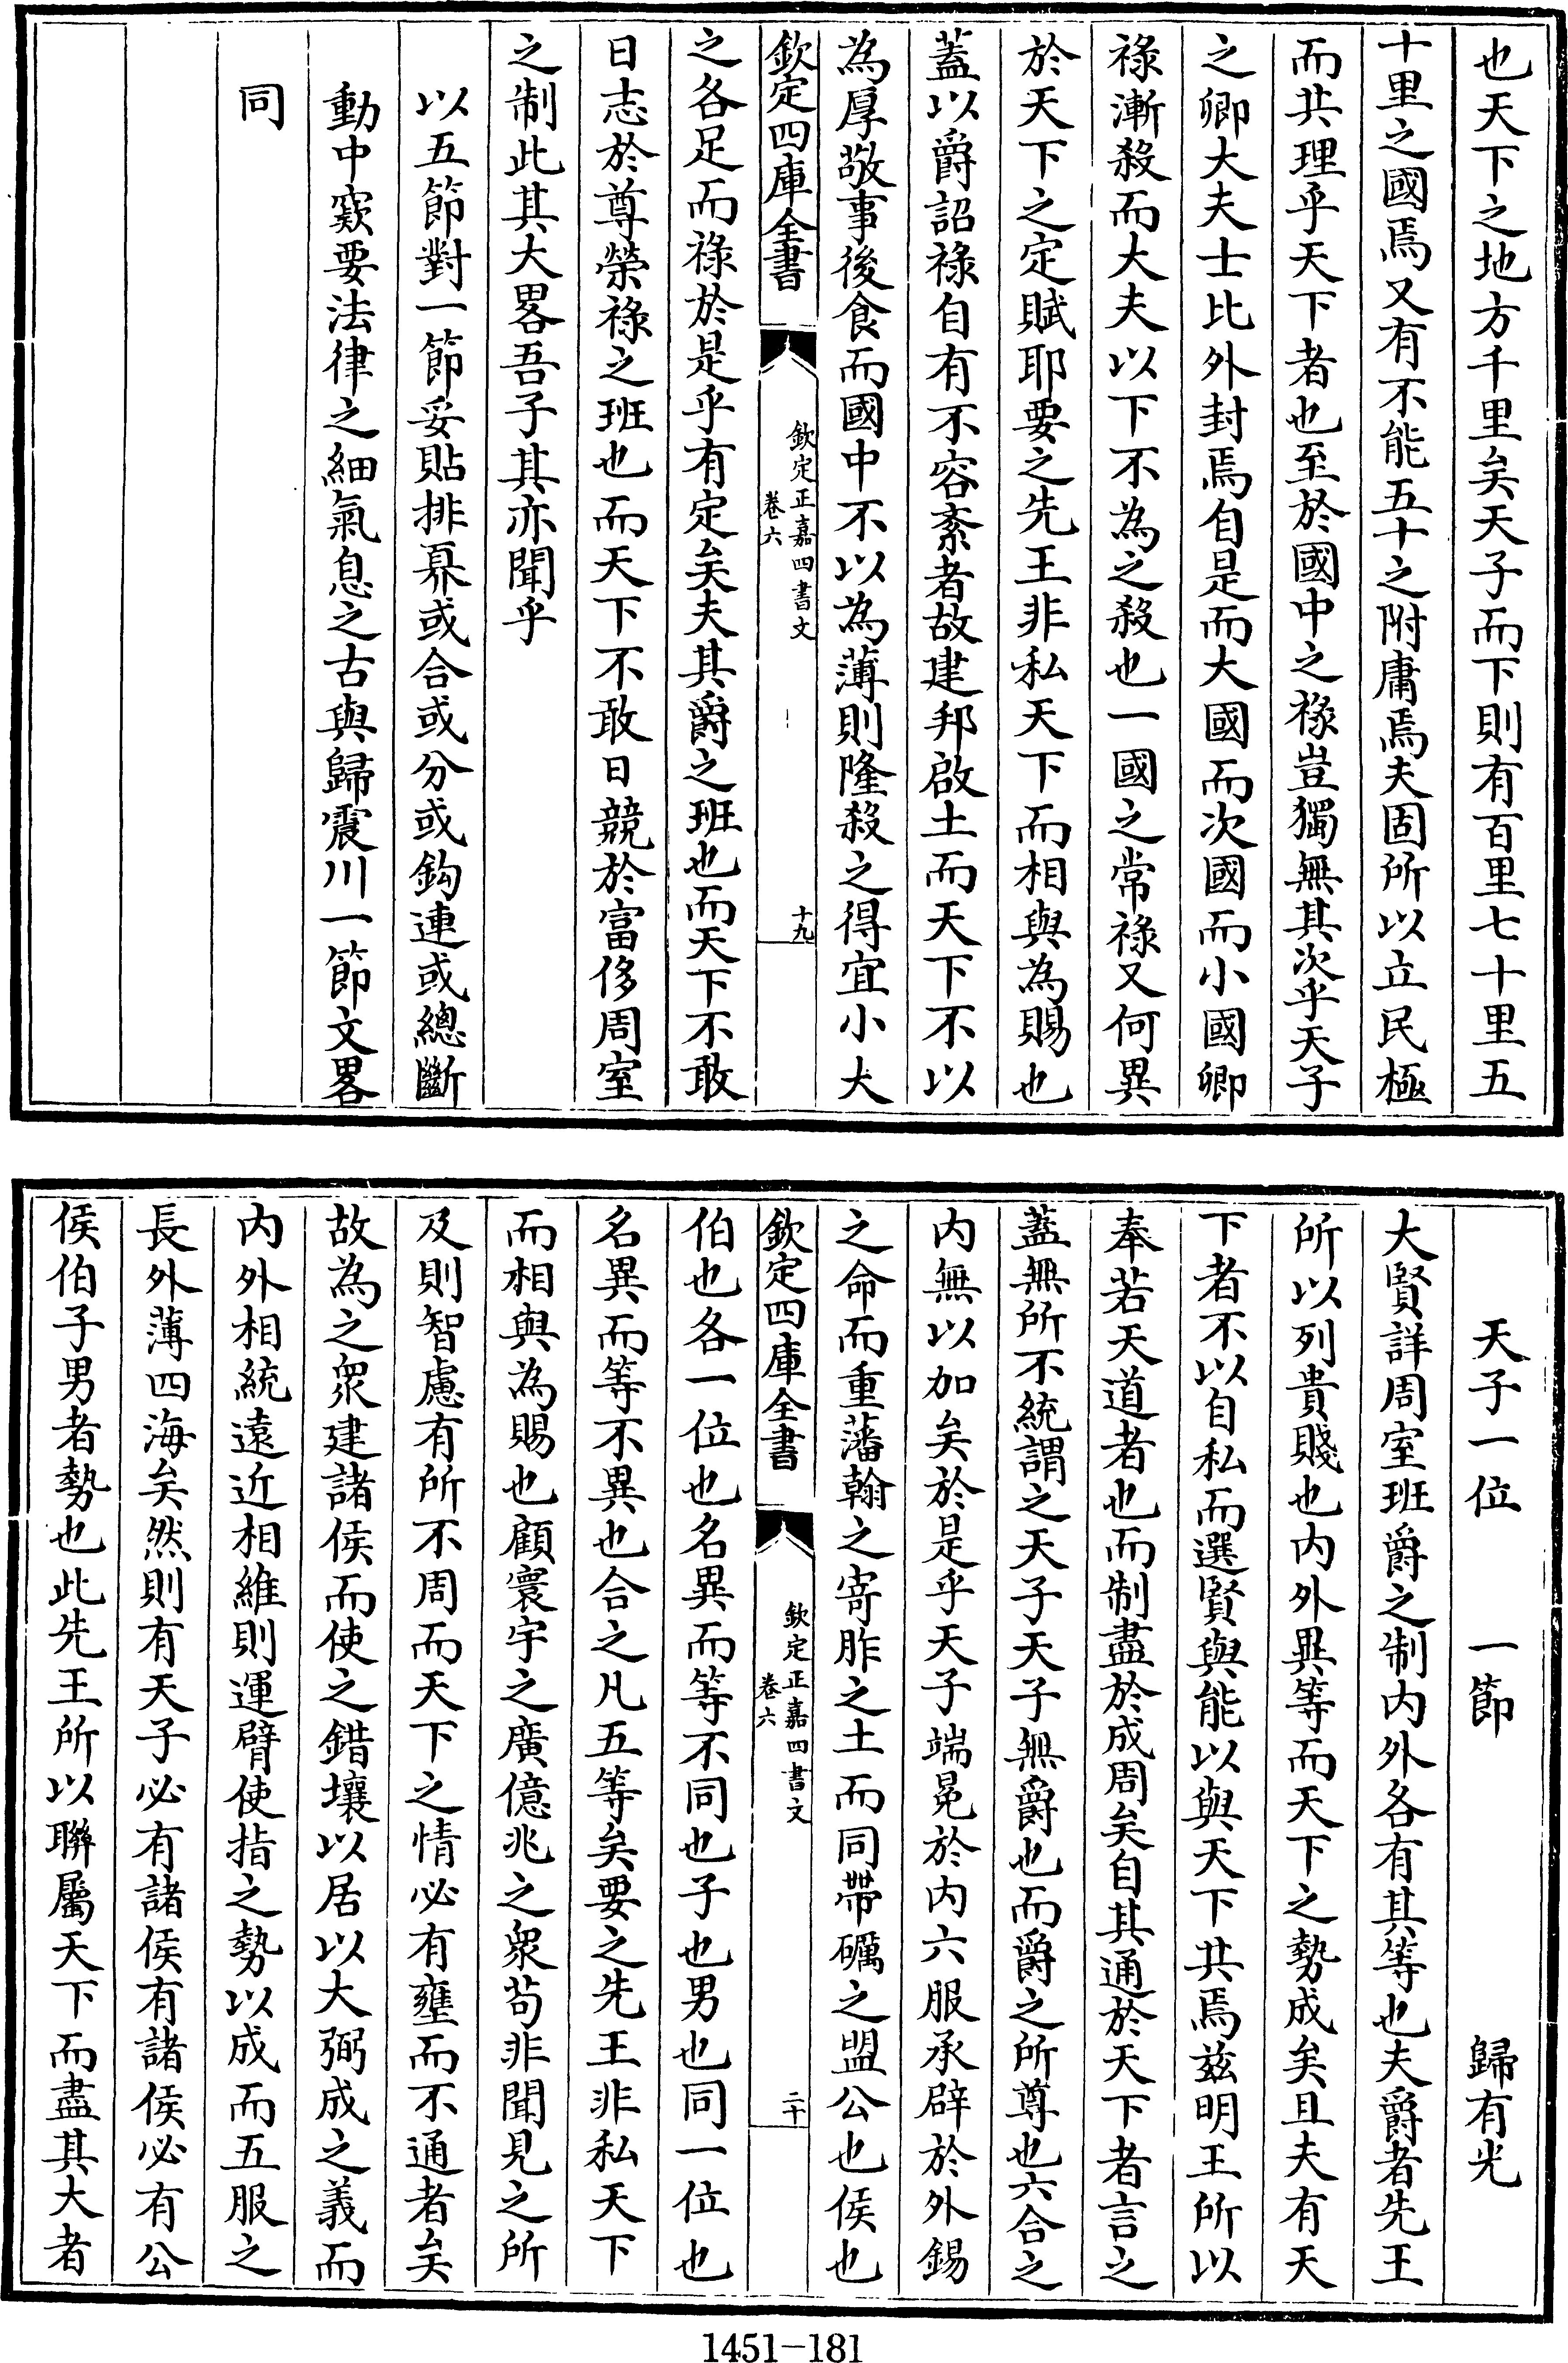 也天下之地方千里矣天子而下則有百里七十里五
十里之國焉又有不能五十之附庸焉夫固所以立民極
而共理乎天下者也至於國中之祿豈獨無其次乎天子
之卿大夫士比外封焉自是而大國而次國而小國卿
祿漸殺而大夫以下不為之殺也一國之常祿又何異
於天下之定賦耶要之先王非私天下而相與為賜也
蓋以爵詔祿自有不容紊者故建邦啟土而天下不以
為厚敬事後食而國中不以為薄則隆殺之得宜小大
欽定四庫全書
欽定正嘉四書文
卷六
十九
之各足而祿於是乎有定矣夫其爵之班也而天下不敢
日志於尊榮祿之班也而天下不敢日競於富侈周室
之制此其大畧吾子其亦聞乎
以五節對一節妥貼排奡或合或分或鈎連或總斷
動中窾要法律之細氣息之古與歸震川一節文畧
同
天子一位　一節　歸有光
大賢詳周室班爵之制內外各有其等也夫爵者先王
所以列貴賤也內外異等而天下之勢成矣且夫有天
下者不以自私而選賢與能以與天下共焉茲明王所以
奉若天道者也而制盡於成周矣自其通於天下者言之
蓋無所不統謂之天子天子無爵也而爵之所尊也六合之
內無以加矣於是乎天子端冕於內六服承辟於外錫
之命而重藩翰之寄胙之土而同帶礪之盟公也侯也
欽定四庫全書
欽定正嘉四書文
卷六
二十
伯也各一位也名異而等不同也子也男也同一位也
名異而等不異也合之凡五等矣要之先王非私天下
而相與為賜也顧寰宇之廣億兆之眾苟非聞見之所
及則智慮有所不周而天下之情必有壅而不通者矣
故為之眾建諸侯而使之錯壤以居以大弼成之義而
內外相統遠近相維則運臂使指之勢以成而五服之
長外薄四海矣然則有天子必有諸侯有諸侯必有公
侯伯子男者勢也此先王所以聯屬天下而盡其大者
1451-181